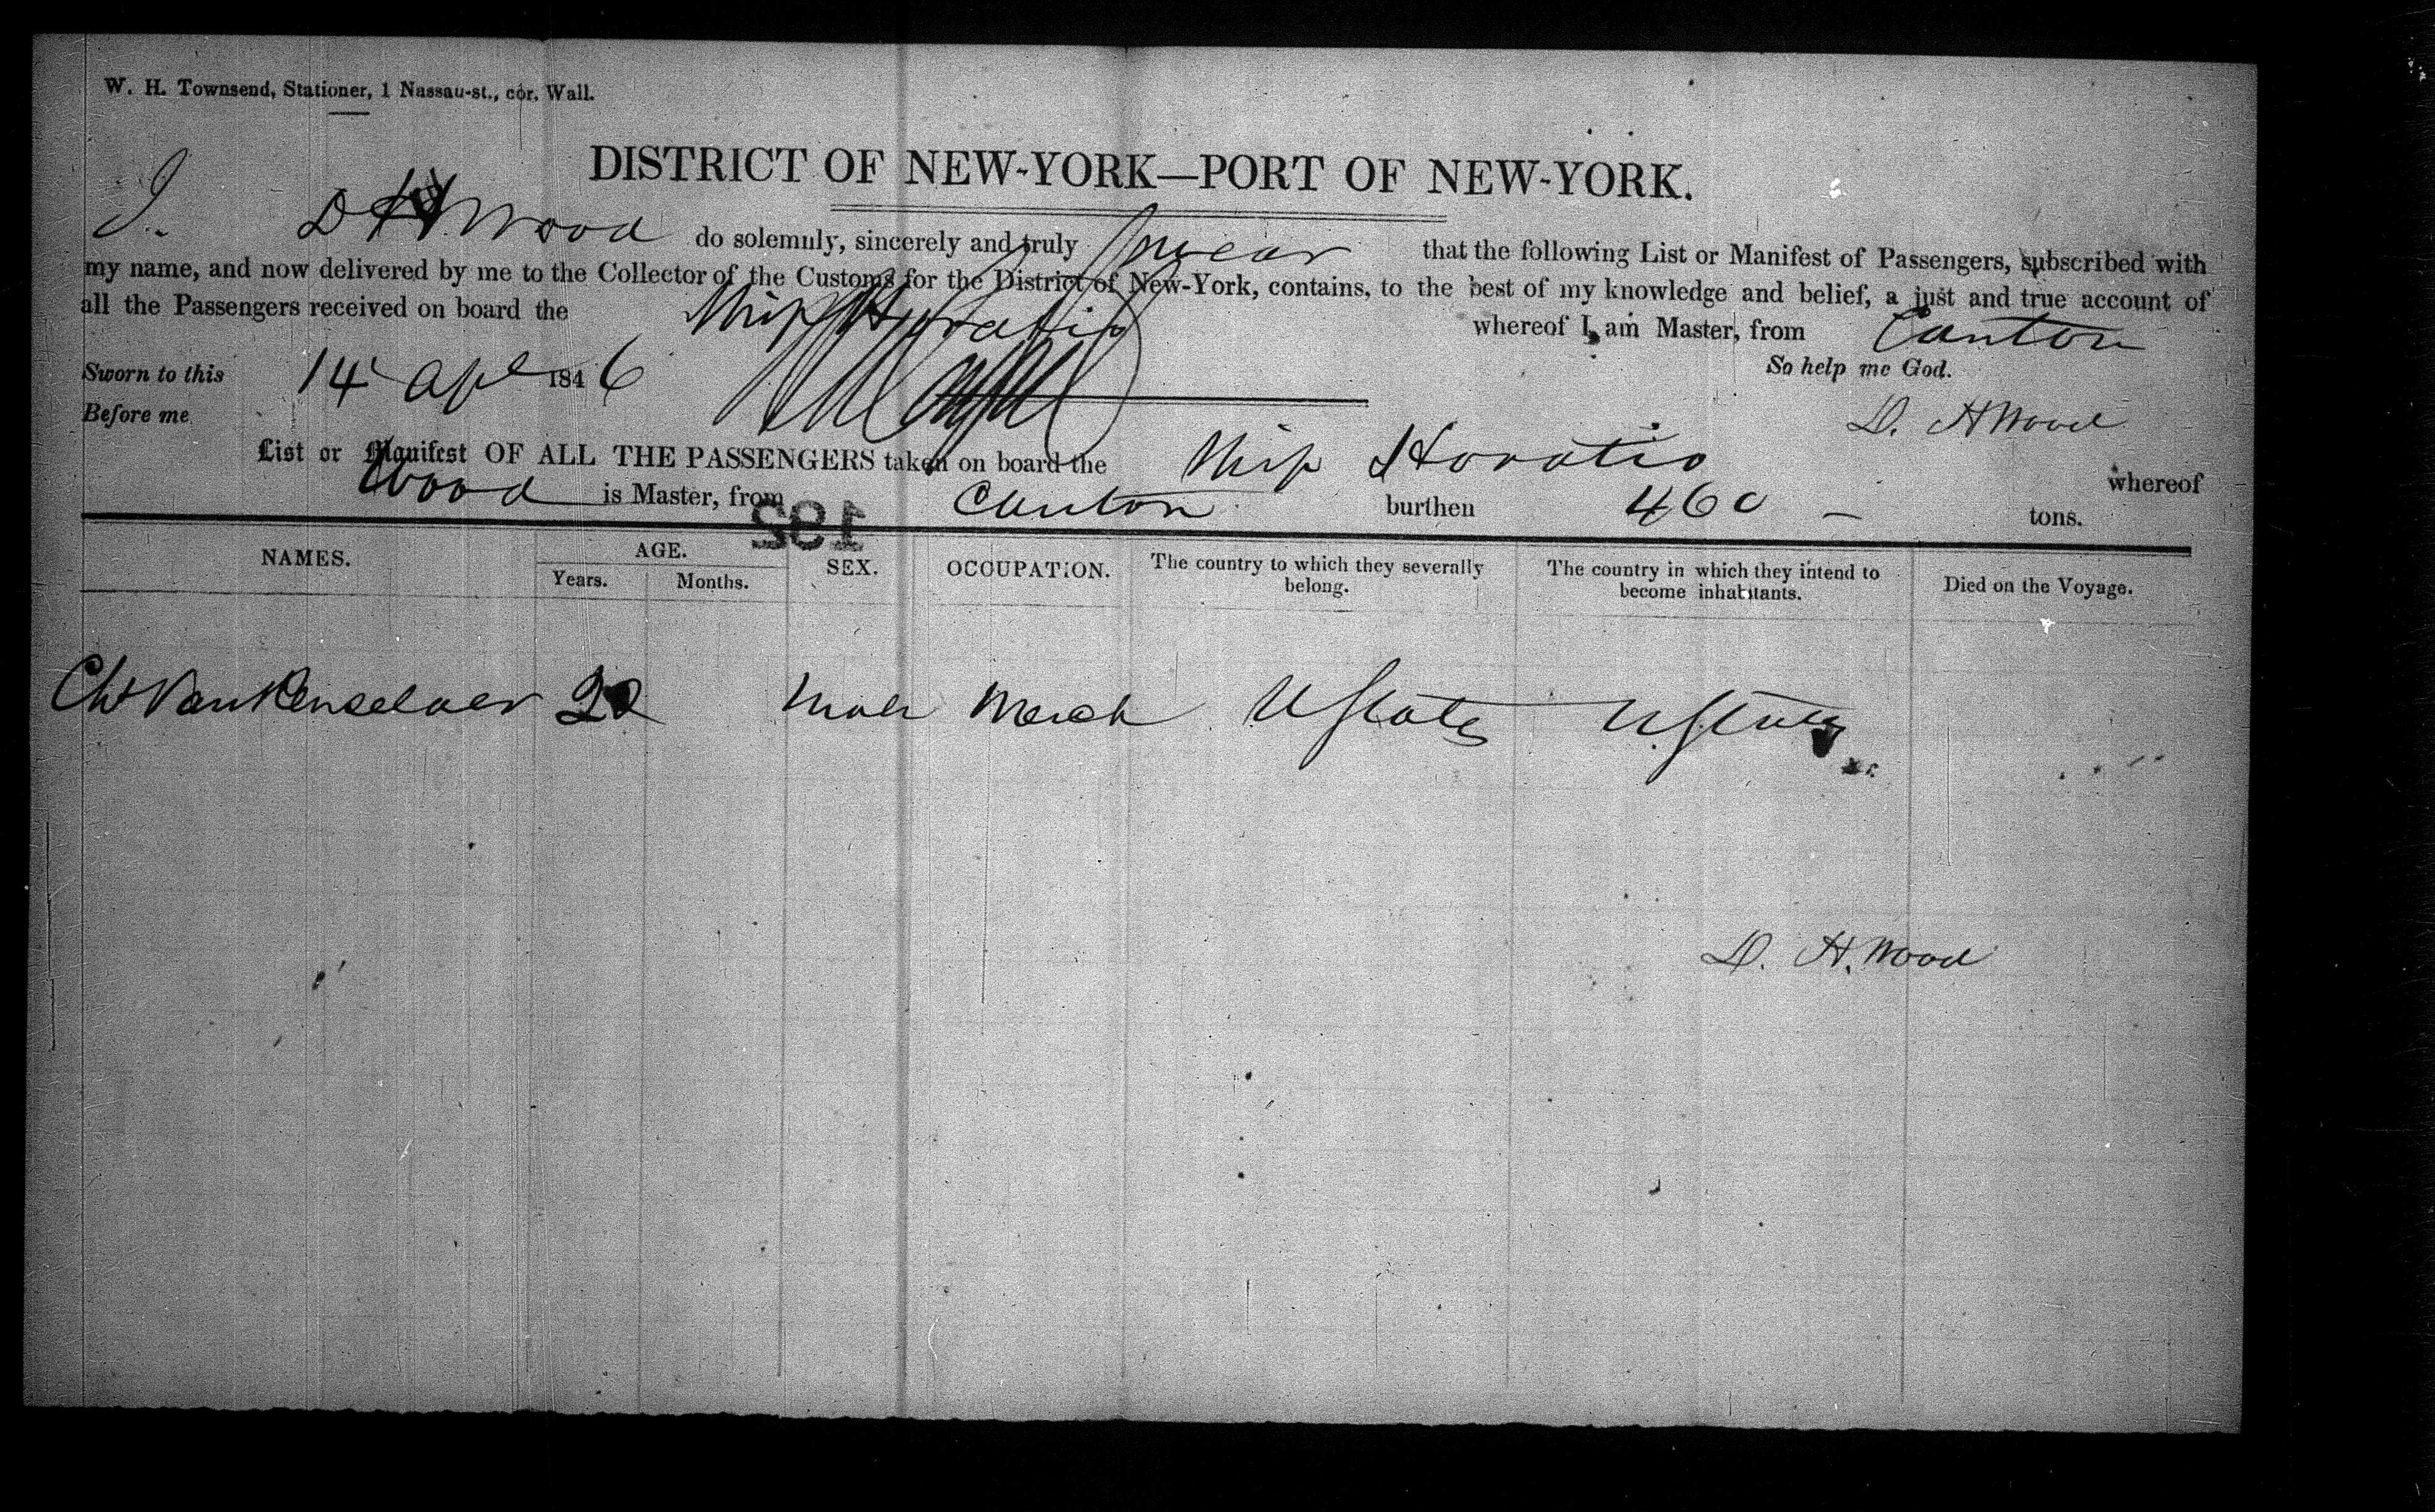 W. H. Townsend, Stationer, 1 Nassau-st., cor. Wall.
DISTRICT OF NEW-YORK—PORT OF NEW-YORK.
I. D H Wood do solemnly, sincerely and truly swear that the following List or Manifest of Passengers, subscribed with
my name, and now delivered by me to the Collector of the Customs for the District of New-York, contains, to the best of my knowledge and belief, a just and true account of
all the Passengers received on board the Ship Horatio whereof I am Master, from Canton
Sworn to this 14 Apl 1846 So help me God.
Before me D. H Wood
List or Manifest OF ALL THE PASSENGERS taken on board the Ship Horatio whereof
Wood is Master, from Canton burthen 460 – tons.
185
NAMES. AGE. Years. Months. SEX. OCCUPATION. The country to which they severally belong. The country in which they intend to become inhabitants. Died on the Voyage.
Chs Van Renselaer 22 male Merch U States U States
D. H. Wood